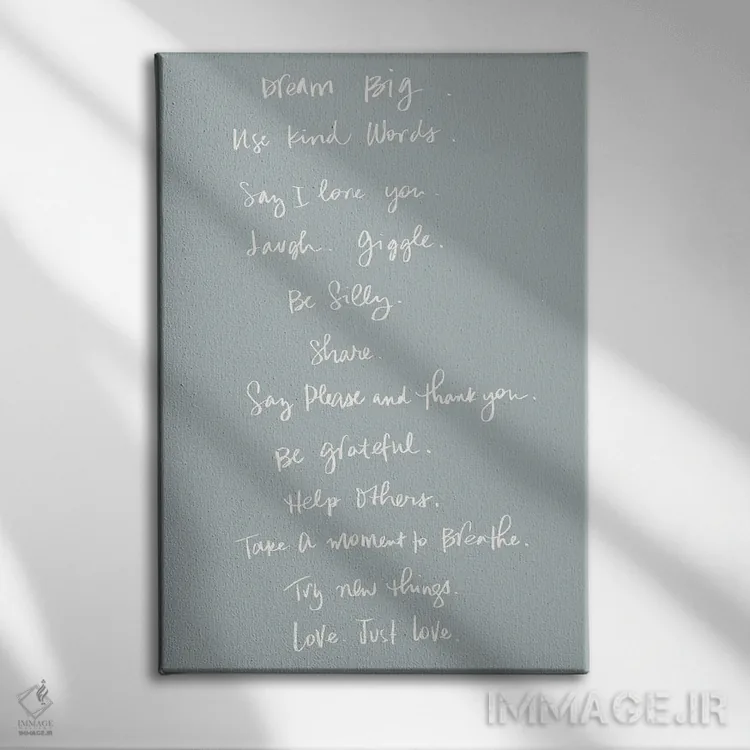 Dream Big.
Use Kind Words.
Say I love you.
Laugh. Giggle.
Be Silly.
Share.
Say Please and thank you.
Be grateful.
Help Others.
Take A moment to Breathe.
Try new things.
Love. Just love.
IMMAGE
IMMAGE.IR
IMMAGE.IR